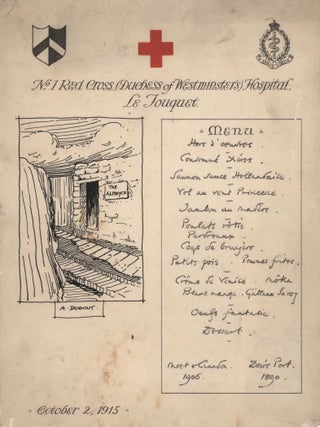 No. 1 Red Cross (Duchess of Westminster's) Hospital,
Le Touquet.
Menu
Hors d'oeuvres.
Consommé Xérès.
Saumon sauce Hollandaise
Vol au vent Princesse
Jambon au madère.
Poulets rôtis
Perdreaux
Coqs de bruyère.
Petits pois. Pommes frites.
Crème de Venise. Môka
Blanc mange. Gâteau Savoy
Oeufs fantaisie
Dessert.
Moet & Chandon 1906.
Dow's Port. 1890.
THE
A DUGOUT.
October 2, 1915